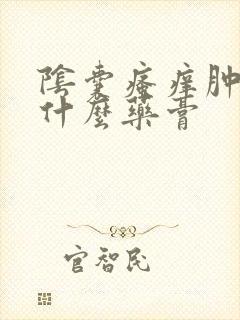 陰囊瘙癢肿
什麼藥膏
官智民